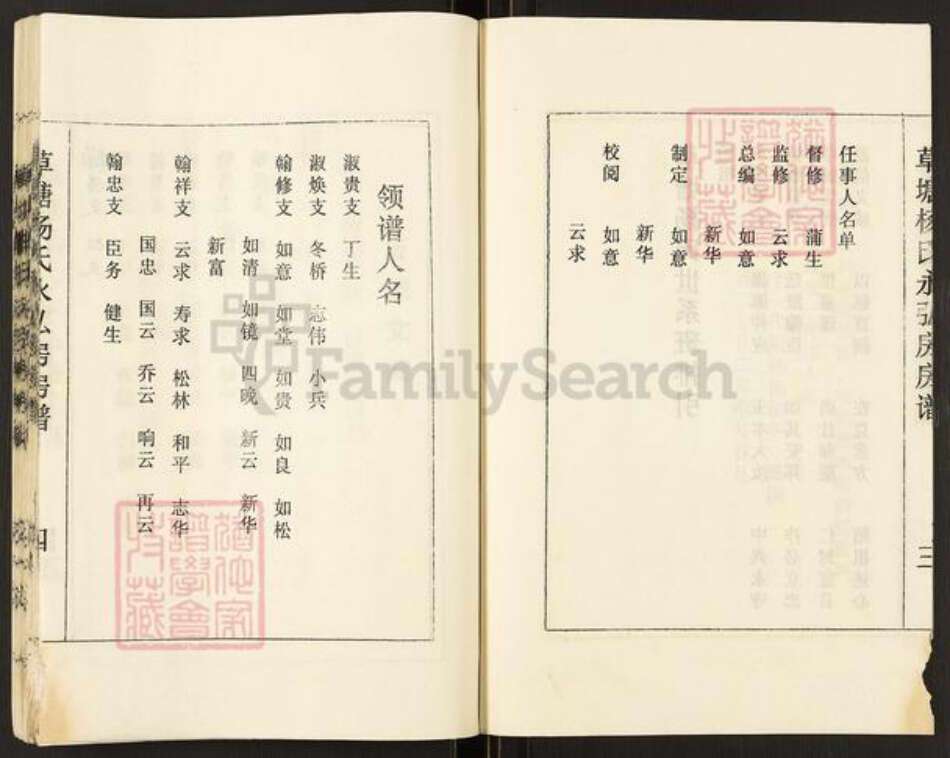 草塘杨氏永弘房房谱
三
任事人名单
督修 蒲生
监修 云求
总编 如意
新华
制定 如意
新华
校阅 如意
云求
领谱人名
淑贵支 丁生
淑焕支 冬桥 志伟 小兵
翰修支 如意 如堂 如贵 如良 如松
如清 如镜 四晚 新云 新华
新富
翰祥支 云求 寿求 松林 和平 志华
国忠 国云 乔云 响云 再云
翰忠支 臣务 健生
草塘杨氏永弘房房谱
四
FamilySearch